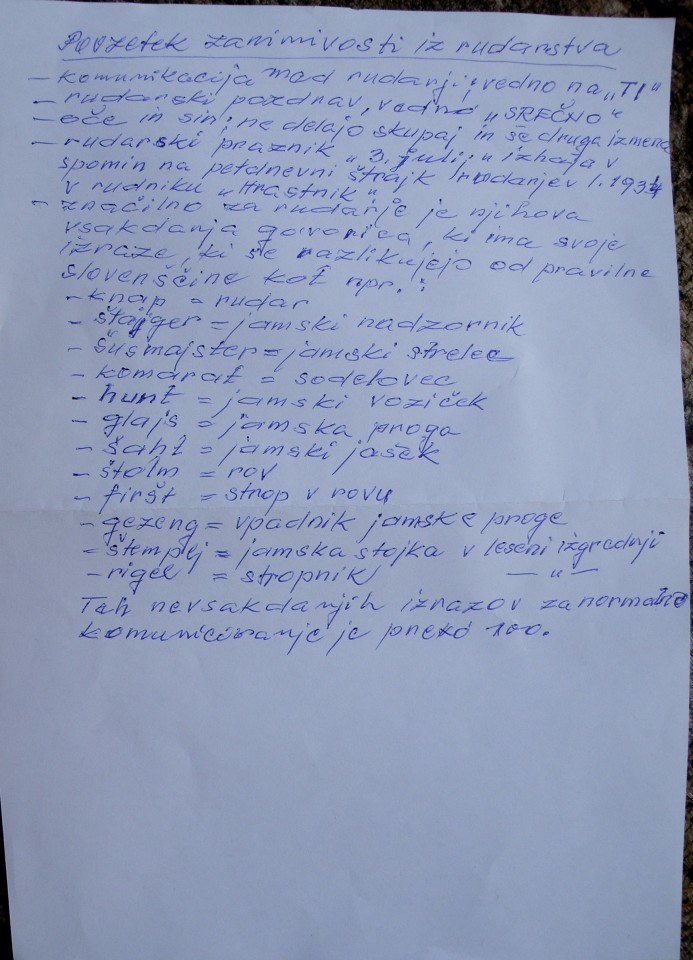 Povzetek zanimivosti iz rudarstva
- komunikacija med rudarji; vedno na „TI"
- rudarski pozdrav, vedno „SREČNO"
- oče in sin; ne delajo skupaj in še druga izmena
- rudarski praznik „3. julij" izhaja v
spomin na petdnevni štrajk rudarjev l. 1934
v rudniku „Hrastnik"
- značilno za rudarje je njihova
vsakdanja govorica, ki ima svoje
izraze, ki se razlikujejo od pravilne
slovenščine kot npr.:
- knap = rudar
- štajger = jamski nadzornik
- šusmajster = jamski strelec
- komarat = sodelovec
- hunt = jamski voziček
- glajs = jamska proga
- šaht = jamski jašek
- štolm = rov
- firšt = strop v rovu
- gezeng = vpadnik jamske proge
- štempej = jamska stojka v leseni izgradnji
- rigel = stropnik — " —
Teh nevsakdanjih izrazov za normalno
komuniciranje je preko 100.